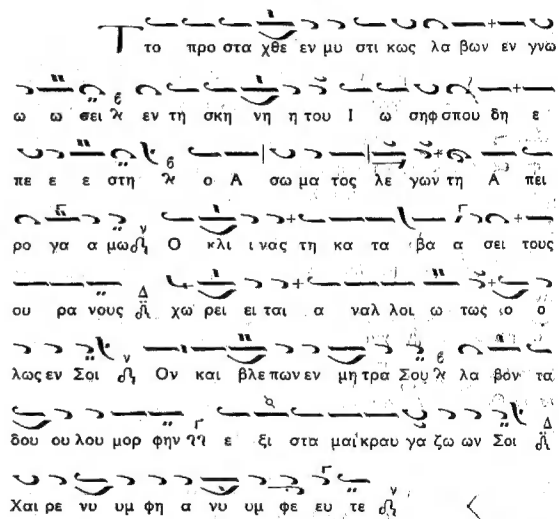 Τ το προ στα χθε εν μυ στι κως λα βων εν γνω
ω ω σει εν τη σκη νη η του Ι ω σηφ σπου δη ε
πε ε ε στη ο Α σω μα τος λε γων τη Α πει
ρο γα α μω Ο κλι ι νας τη κα τα βα α σει τους
ου ρα νους χω ρει ει ται α ναλ λοι ω τως ο ο
λως εν Σοι Ον και βλε πων εν μη τρα Σου λα βον τα
δου ου λου μορ φην ε ξι στα μαι κραυ γα ζω ων Σοι
Χαι ρε νυ υμ φη α νυ υμ φε ευ τε